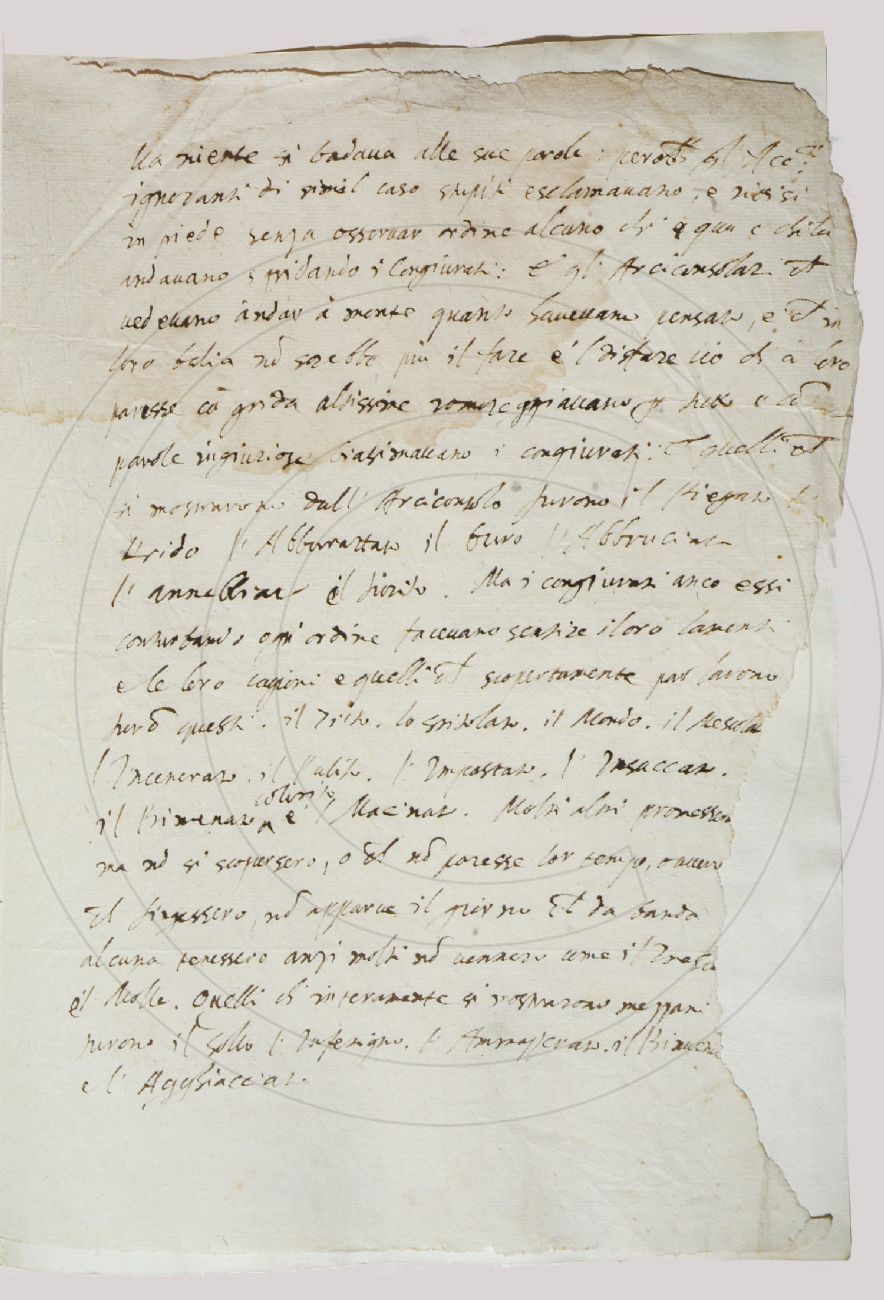 Ma niente si badava alle sue parole: però ch̃ gl'Acc.ci
ignoranti di simil caso stupiti esclamavano, e rizzisi
in piede senza osservar ordine alcuno chi qua e chi la
andavano sgridando i Congiurati: E gl'Arciconsolari ch̃
vedevano andar à monte quanto havevano pensato, e ch̃ in
loro balia nõ sarebbe più il fare e'l disfare ciò ch̃ à loro
paresse cõ grida altissime romoreggiavano e cõ
parole ingiuriose biasimavano i congiurati: E quelli ch̃
si mostravono dall'Arciconsolo furono il Riegato
Grido l'Abburattato il Duro l'Abbruciato
l'annebbiato il fiorito. Ma i congiurati anco essi
conturbando ogn'ordine facevano sentire i loro lamenti
e le loro cagioni e quelli ch̃ scopertamente parlarono
furõ questi. il Trito. lo spigolato. il Mondo. il Mescola
l'Incenerato. il Pulito. l'Impastato. l'Insaccato.
il Rimenato colorito e'l Macinato. Molti altri promessono
ma nõ si scopersero, o ch̃ nõ paresse lor tempo, o vero
ch̃ fingessero, nõ apparve il giorno ch̃ da banda
alcuna tenessero anzi molti nõ vennero come il
e'l Molle. Quelli ch̃ interamente si mostrarono mezzani
furono il sollo l'Inferigno. l'Ammazzerato. il Rimena
e l'Agghiacciato.